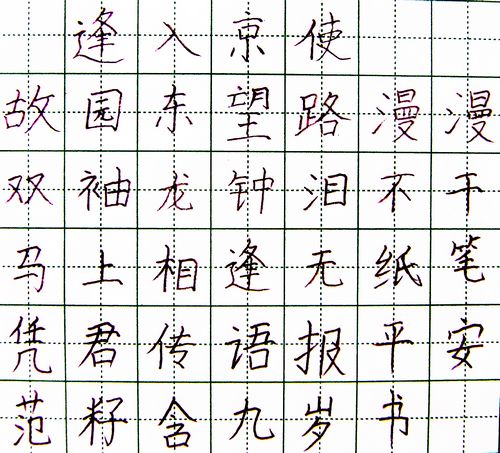 逢入京使
故园东望路漫漫
双袖龙钟泪不干
马上相逢无纸笔
凭君传语报平安
范籽含九岁书